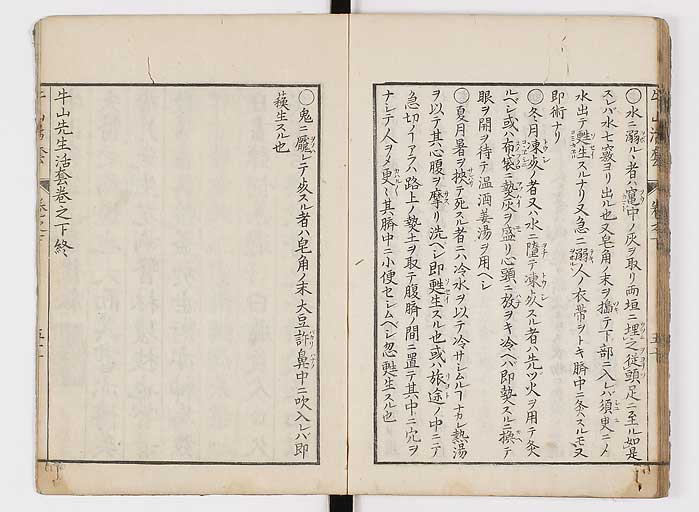 ○水ニ溺ルヽ者ハ竃中ノ灰ヲ取リ両垣ニ埋之従頭足ニ至ル如是
スレバ水七竅ヨリ出ル也又皂角ノ末ヲ搗テ下部ニ入レバ須臾ニメ
水出テ甦生スルナリ又急ニ溺人ノ衣帯ヲトキ臍中ニ灸スルモ又
即術ナリ
○冬月凍死ノ者又ハ水ニ墮テ凍死スル者ハ先ツ火ヲ用テ灸
ルベシ或ハ布袋ニ熱灰ヲ盛リ心頭ニ放ヲキ冷ヘバ即熱スルニ換テ
眼ヲ開ヲ待テ温酒姜湯ヲ用ベシ
○夏月暑ヲ挾テ死スル者ニハ冷水ヲ以テ冷サレムルヿナカレ熱湯
ヲ以テ其心腹ヲ摩リ洗ベレ即甦生スル也或ハ旅途ノ中ニテ
急切ノイアラハ路上ノ熱土ヲ取テ腹臍ノ間ニ置テ其中ニ穴ヲ
ナレテ人ヲメ更〱其臍中ニ小便セレムベレ忽甦生スル也
○鬼ニ魘レテ死スル者ハ皂角ノ末大豆許鼻中ニ吹入レバ即
蘓生スル也
牛山先生活套巻之下終